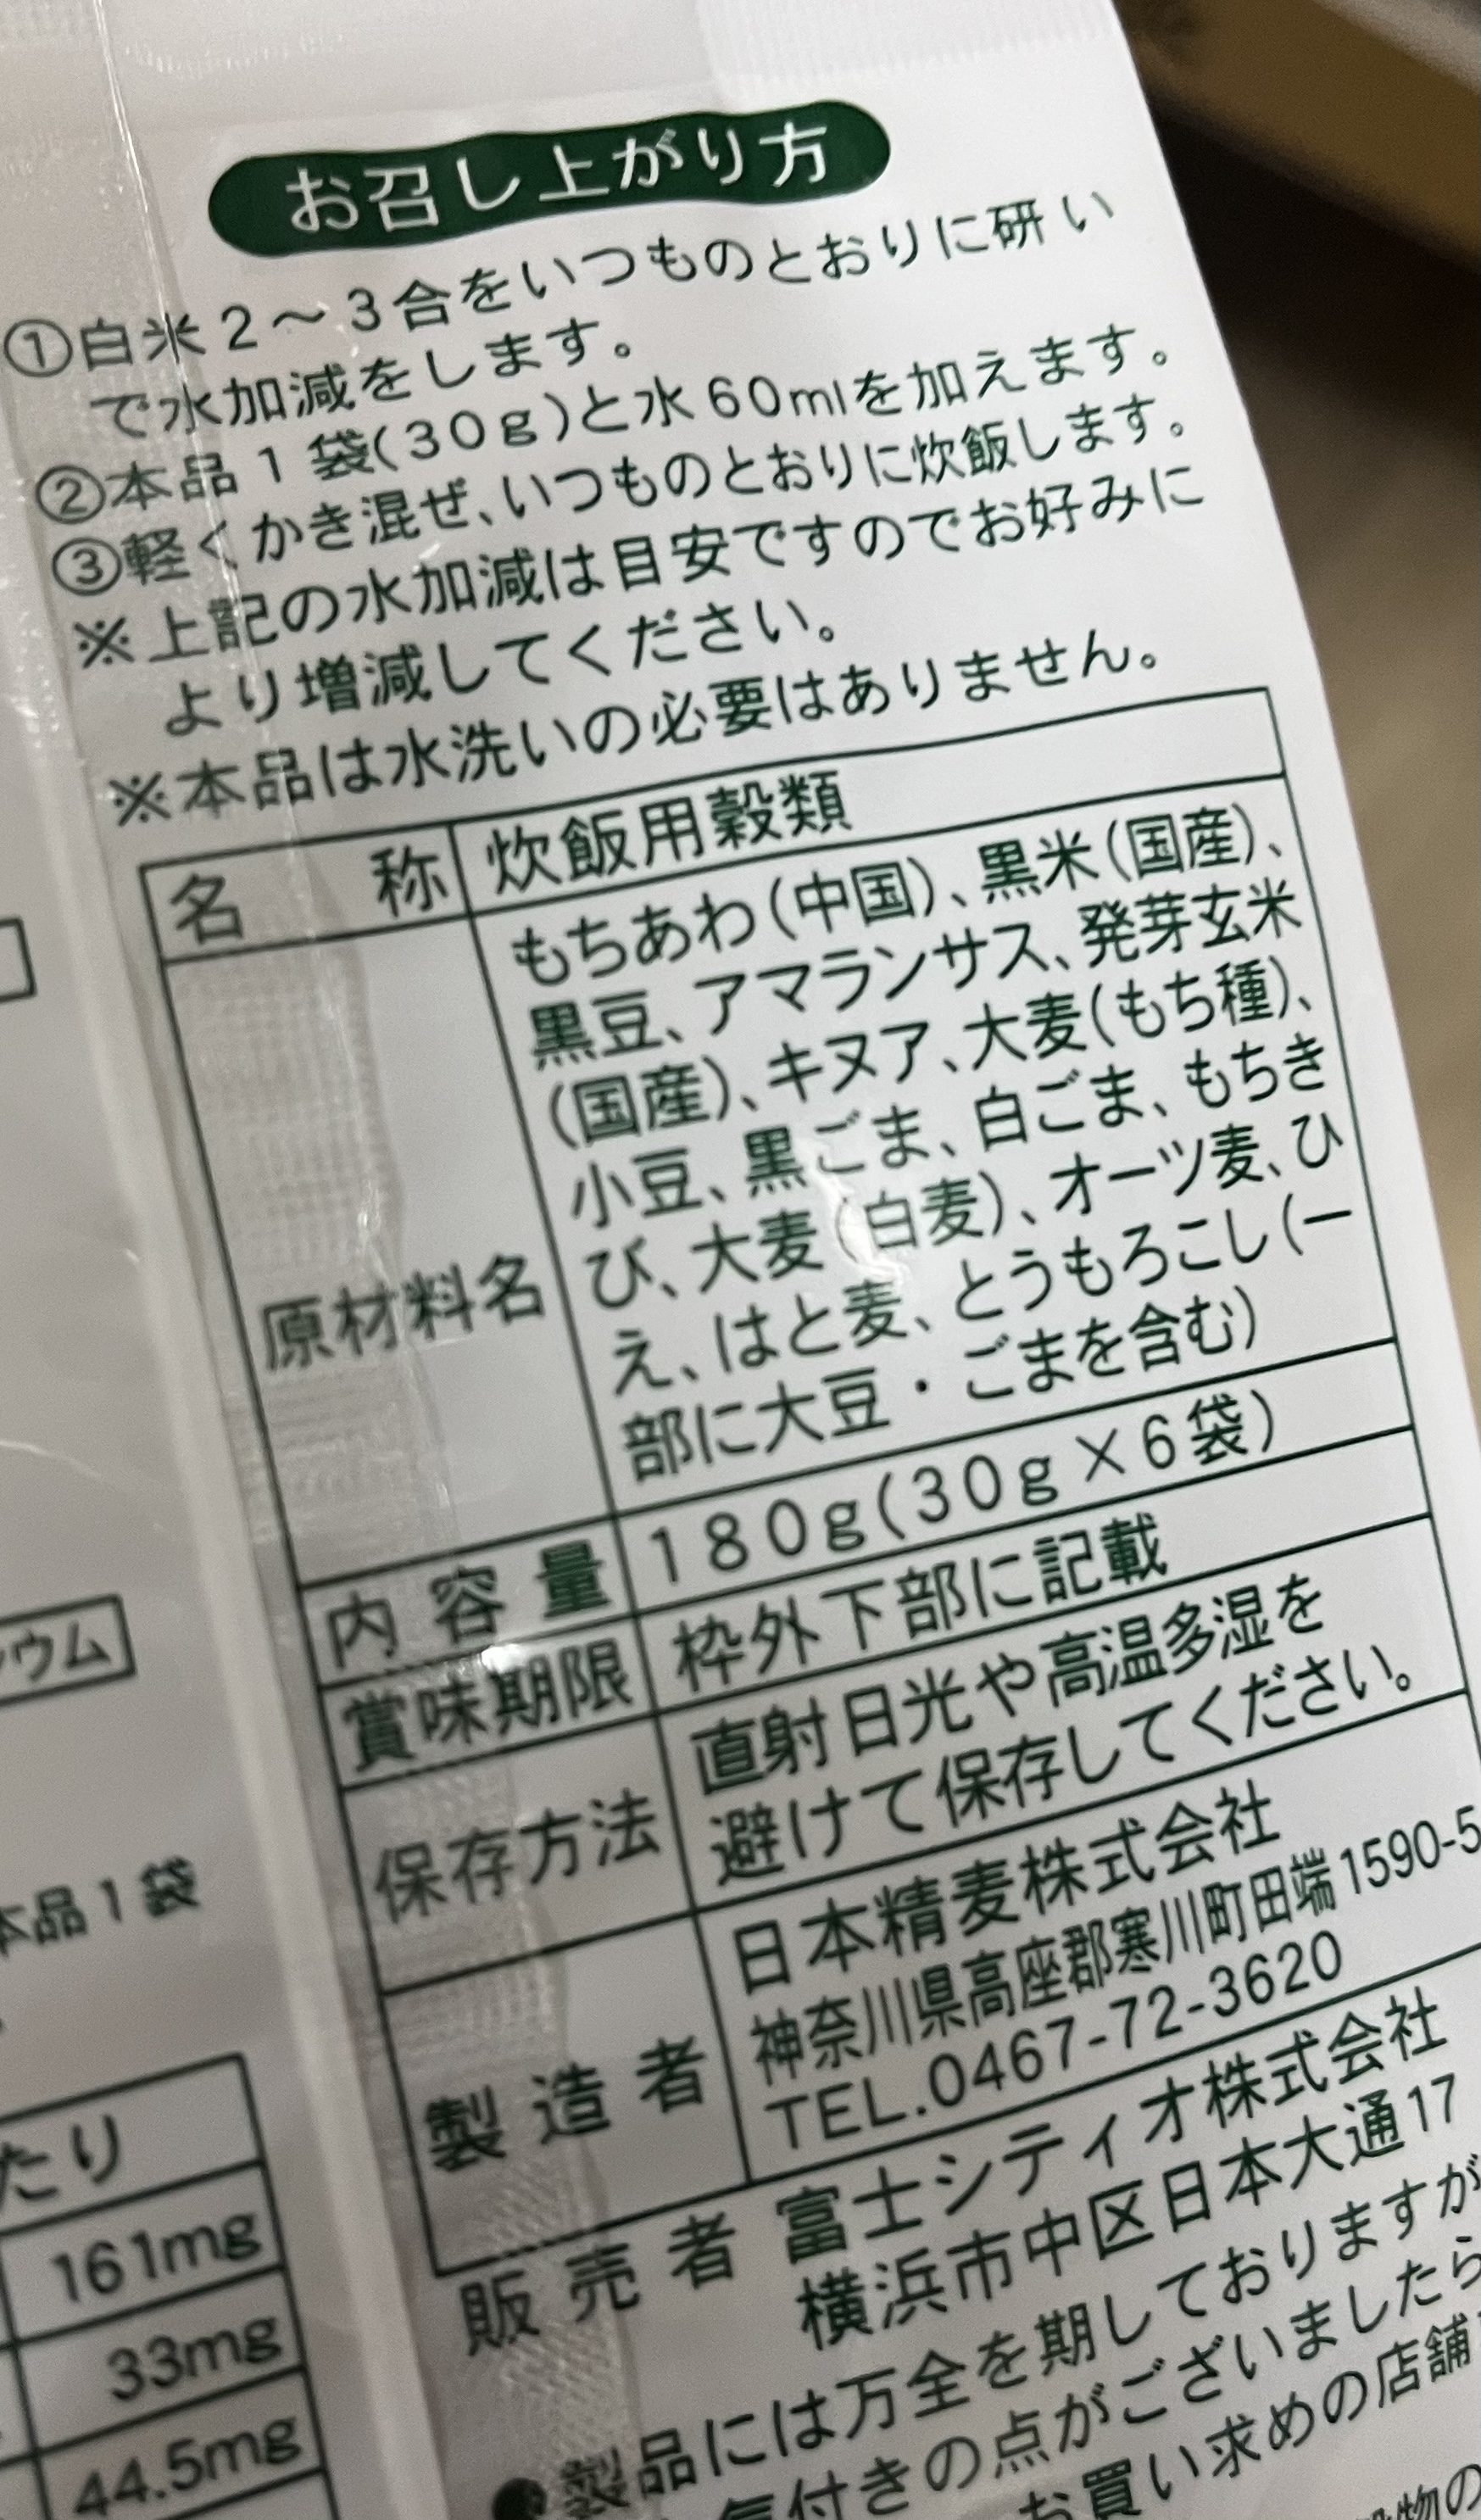 お召し上がり方
①白米2〜3合をいつものとおりに研い
で水加減をします。
②本品1袋(30g)と水60mlを加えます。
③軽くかき混ぜ、いつものとおりに炊飯します。
※上記の水加減は目安ですのでお好みに
より増減してください。
※本品は水洗いの必要はありません。
名称 炊飯用穀類
原材料名
もちあわ(中国)、黒米(国産)、
黒豆、アマランサス、発芽玄米
(国産)、キヌア、大麦(もち種)、
小豆、黒ごま、白ごま、もちき
び、大麦(白麦)、オーツ麦、ひ
え、はと麦、とうもろこし(一
部に大豆・ごまを含む)
内容量 180g(30g×6袋)
賞味期限 枠外下部に記載
保存方法
直射日光や高温多湿を
避けて保存してください。
製造者
日本精麦株式会社
神奈川県高座郡寒川町田端1590-5
TEL.0467-72-3620
販売者 富士シティオ株式会社
横浜市中区日本大通17
●製品には万全を期しておりますが
気付きの点がございましたら
お買い求めの店舗
ウム
本品1袋
たり
161mg
33mg
44.5mg